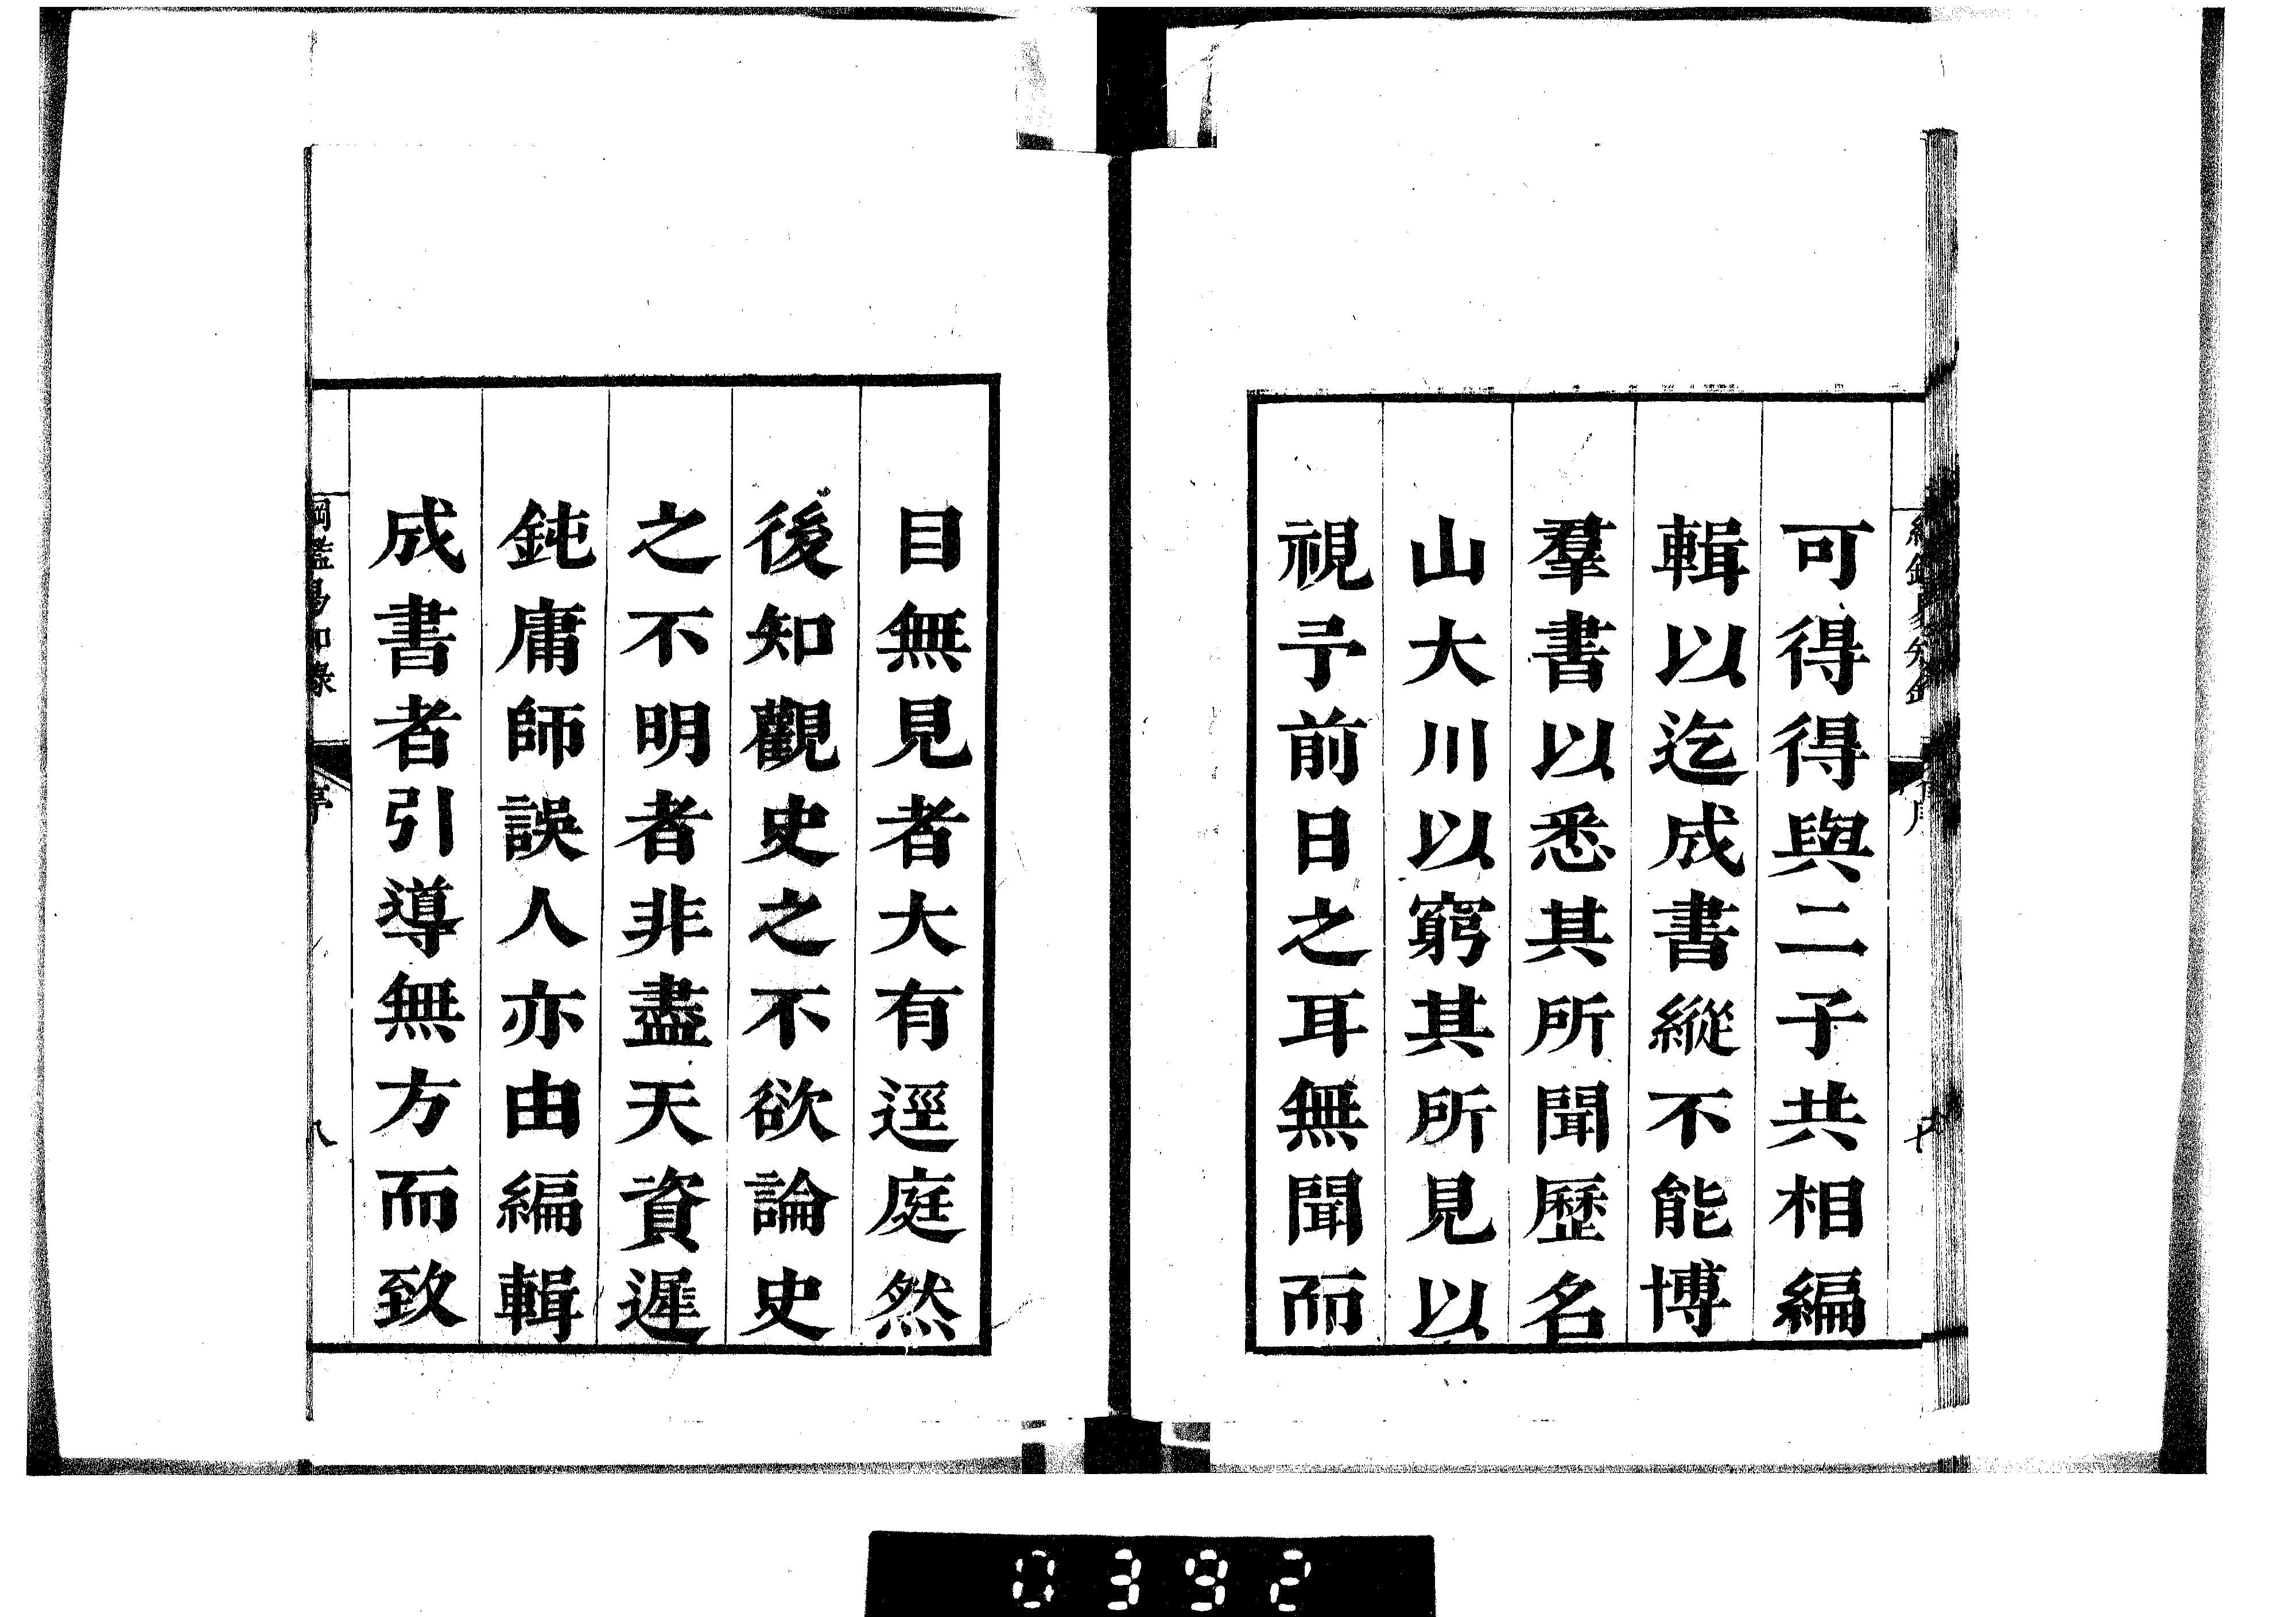 可得得與二子共相編
輯以迄成書縱不能博
羣書以悉其所聞歷名
山大川以窮其所見以
視予前日之耳無聞而
目無見者大有逕庭然
後知觀史之不欲論史
之不明者非盡天資遲
鈍庸師誤人亦由編輯
成書者引導無方而致
綱鑑易知錄
序
八
0392